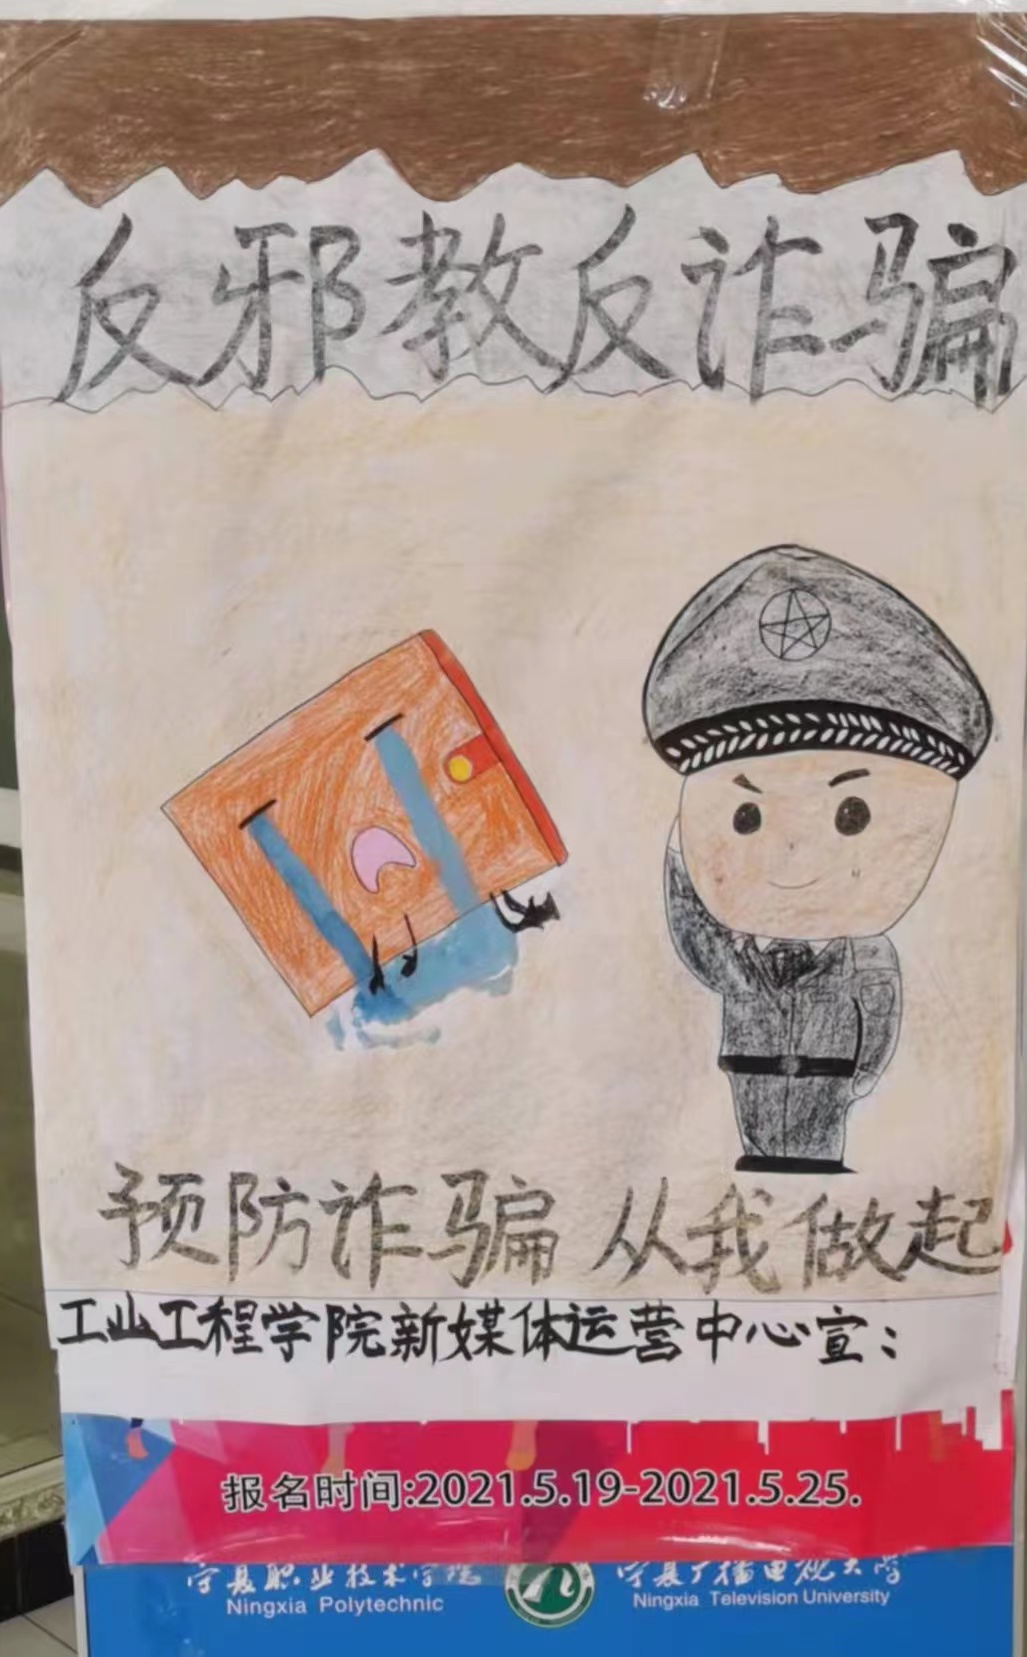 反邪教反诈骗
预防诈骗 从我做起
工业工程学院新媒体运营中心宣:
报名时间:2021.5.19-2021.5.25.
宁夏职业技术学院 宁夏广播电视大学
Ningxia Polytechnic Ningxia Television University